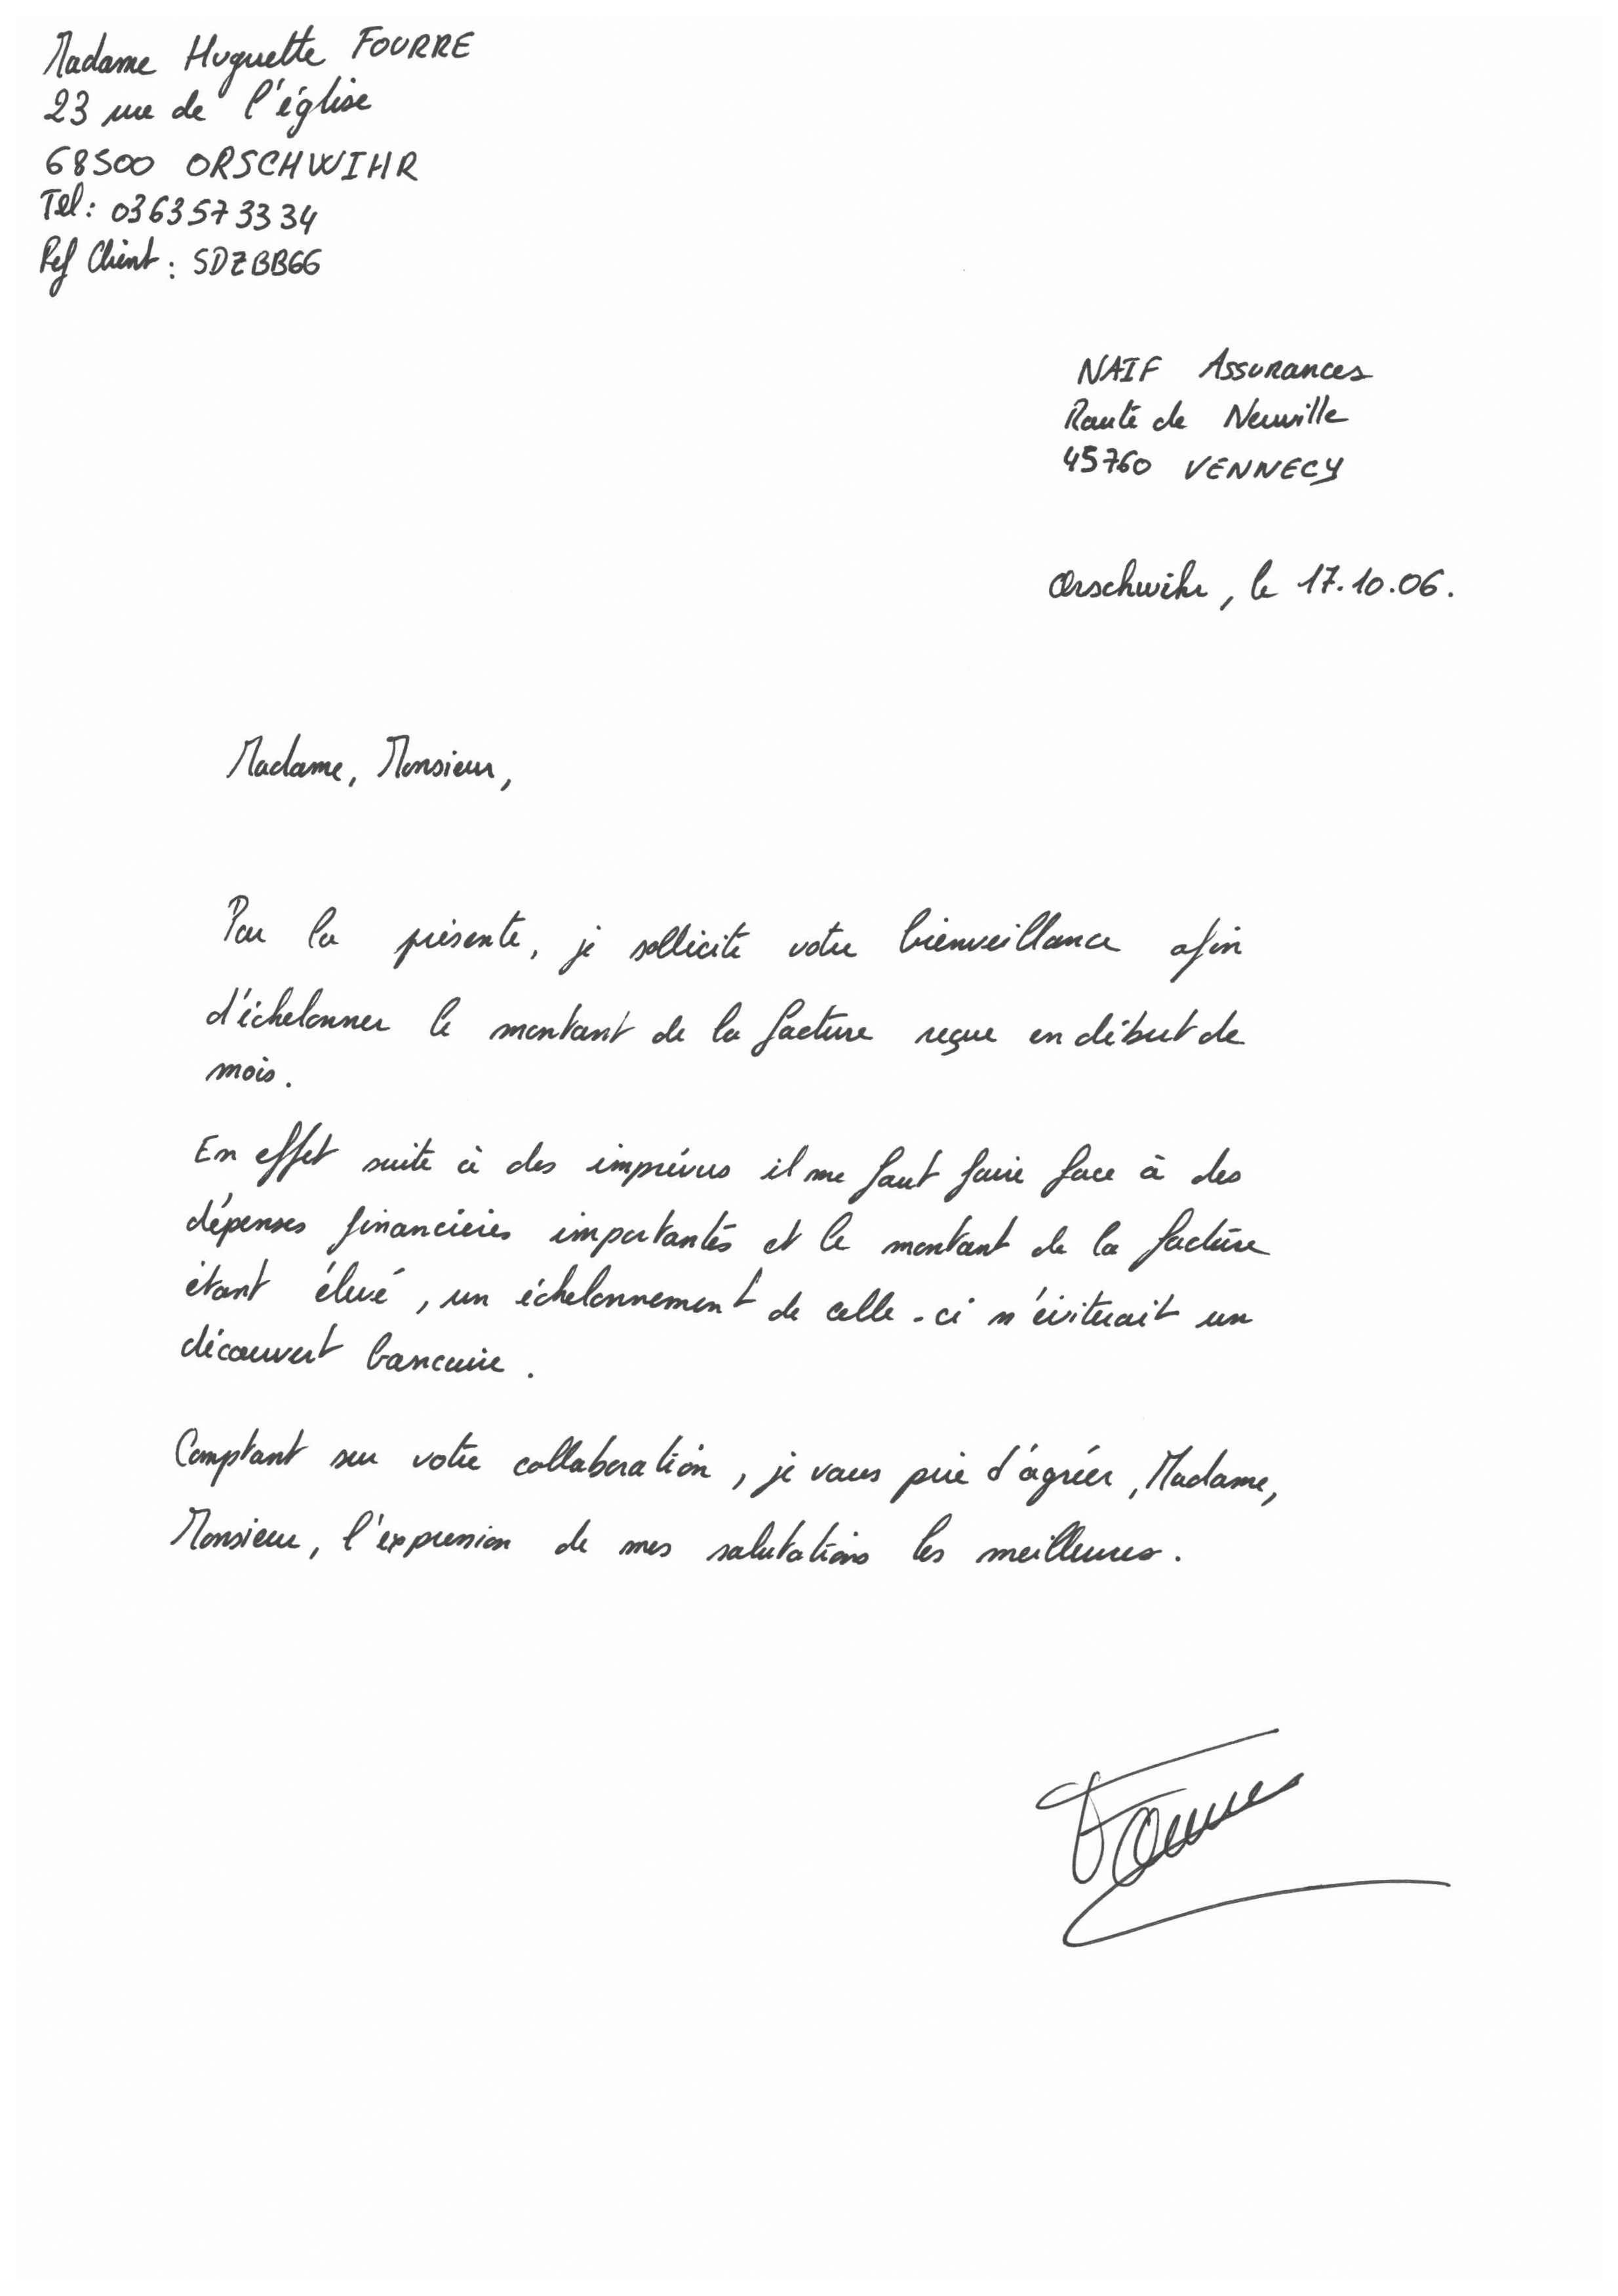 Madame Huguette FOURRE
23 rue de l'église
68500 ORSCHWIHR
Tel : 0363573334
Ref Client : SDZBB66
NAIF Assurances
Route de Neuville
45760 VENNECY
Orschwihr, le 17.10.06.
Madame, Monsieur,
Par la présente, je sollicite votre bienveillance afin
d'échelonner le montant de la facture reçue en début de
mois.
En effet suite à des imprévus il me faut faire face à des
dépenses financières importantes et le montant de la facture
étant élevé, un échelonnement de celle-ci m'éviterait un
découvert bancaire.
Comptant sur votre collaboration, je vous prie d'agréer, Madame,
Monsieur, l'expression de mes salutations les meilleures.